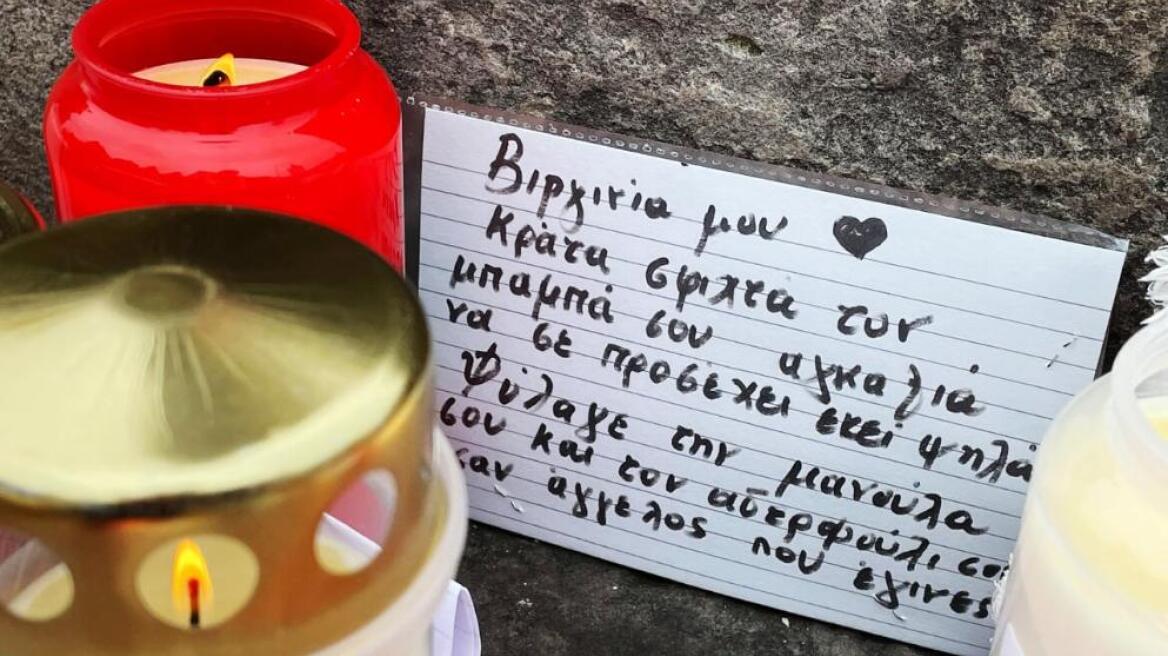 Βιργινία μου ♥
Κράτα σφιχτά τον
μπαμπά σου αγκαλιά
να σε προσέχει εκεί ψηλά
Φύλαγε την μανούλα
σου και τον αδερφούλι σο
σαν άγγελος που έγινες